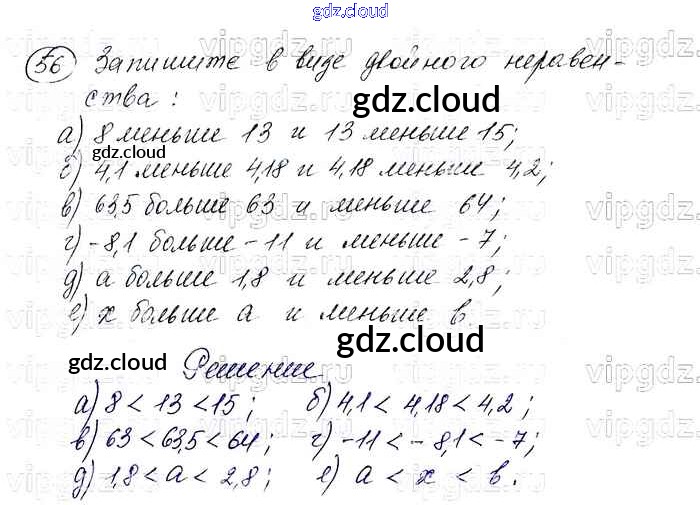 gdz.cloud
56 Запишите в виде двойного неравен-
ства:
gdz.cloud
а) 8 меньше 13 и 13 меньше 15;
gdz.cloud
б) 4,1 меньше 4,18 и 4,18 меньше 4,2;
в) 63,5 больше 63 и меньше 64;
г) -8,1 больше -11 и меньше -7;
д) а больше 1,8 и меньше 2,8;
е) х больше а и меньше в.
gdz.cloud
gdz.cloud
Решение
а) 8 < 13 < 15; б) 4,1 < 4,18 < 4,2;
в) 63 < 63,5 < 64; г) -11 < -8,1 < -7;
д) 1,8 < а < 2,8; е) а < х < в.